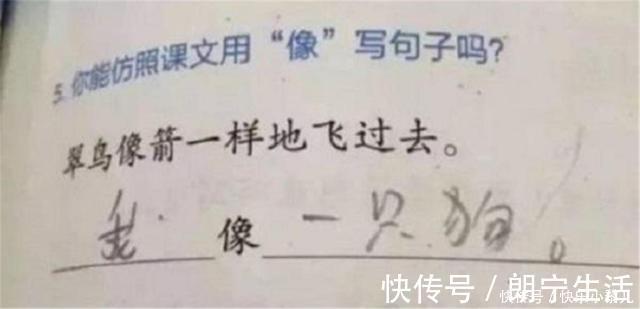 5.你能仿照课文用“像”写句子吗?
翠鸟像箭一样地飞过去。
像 一只狗。
快传号 / 朗宁生活